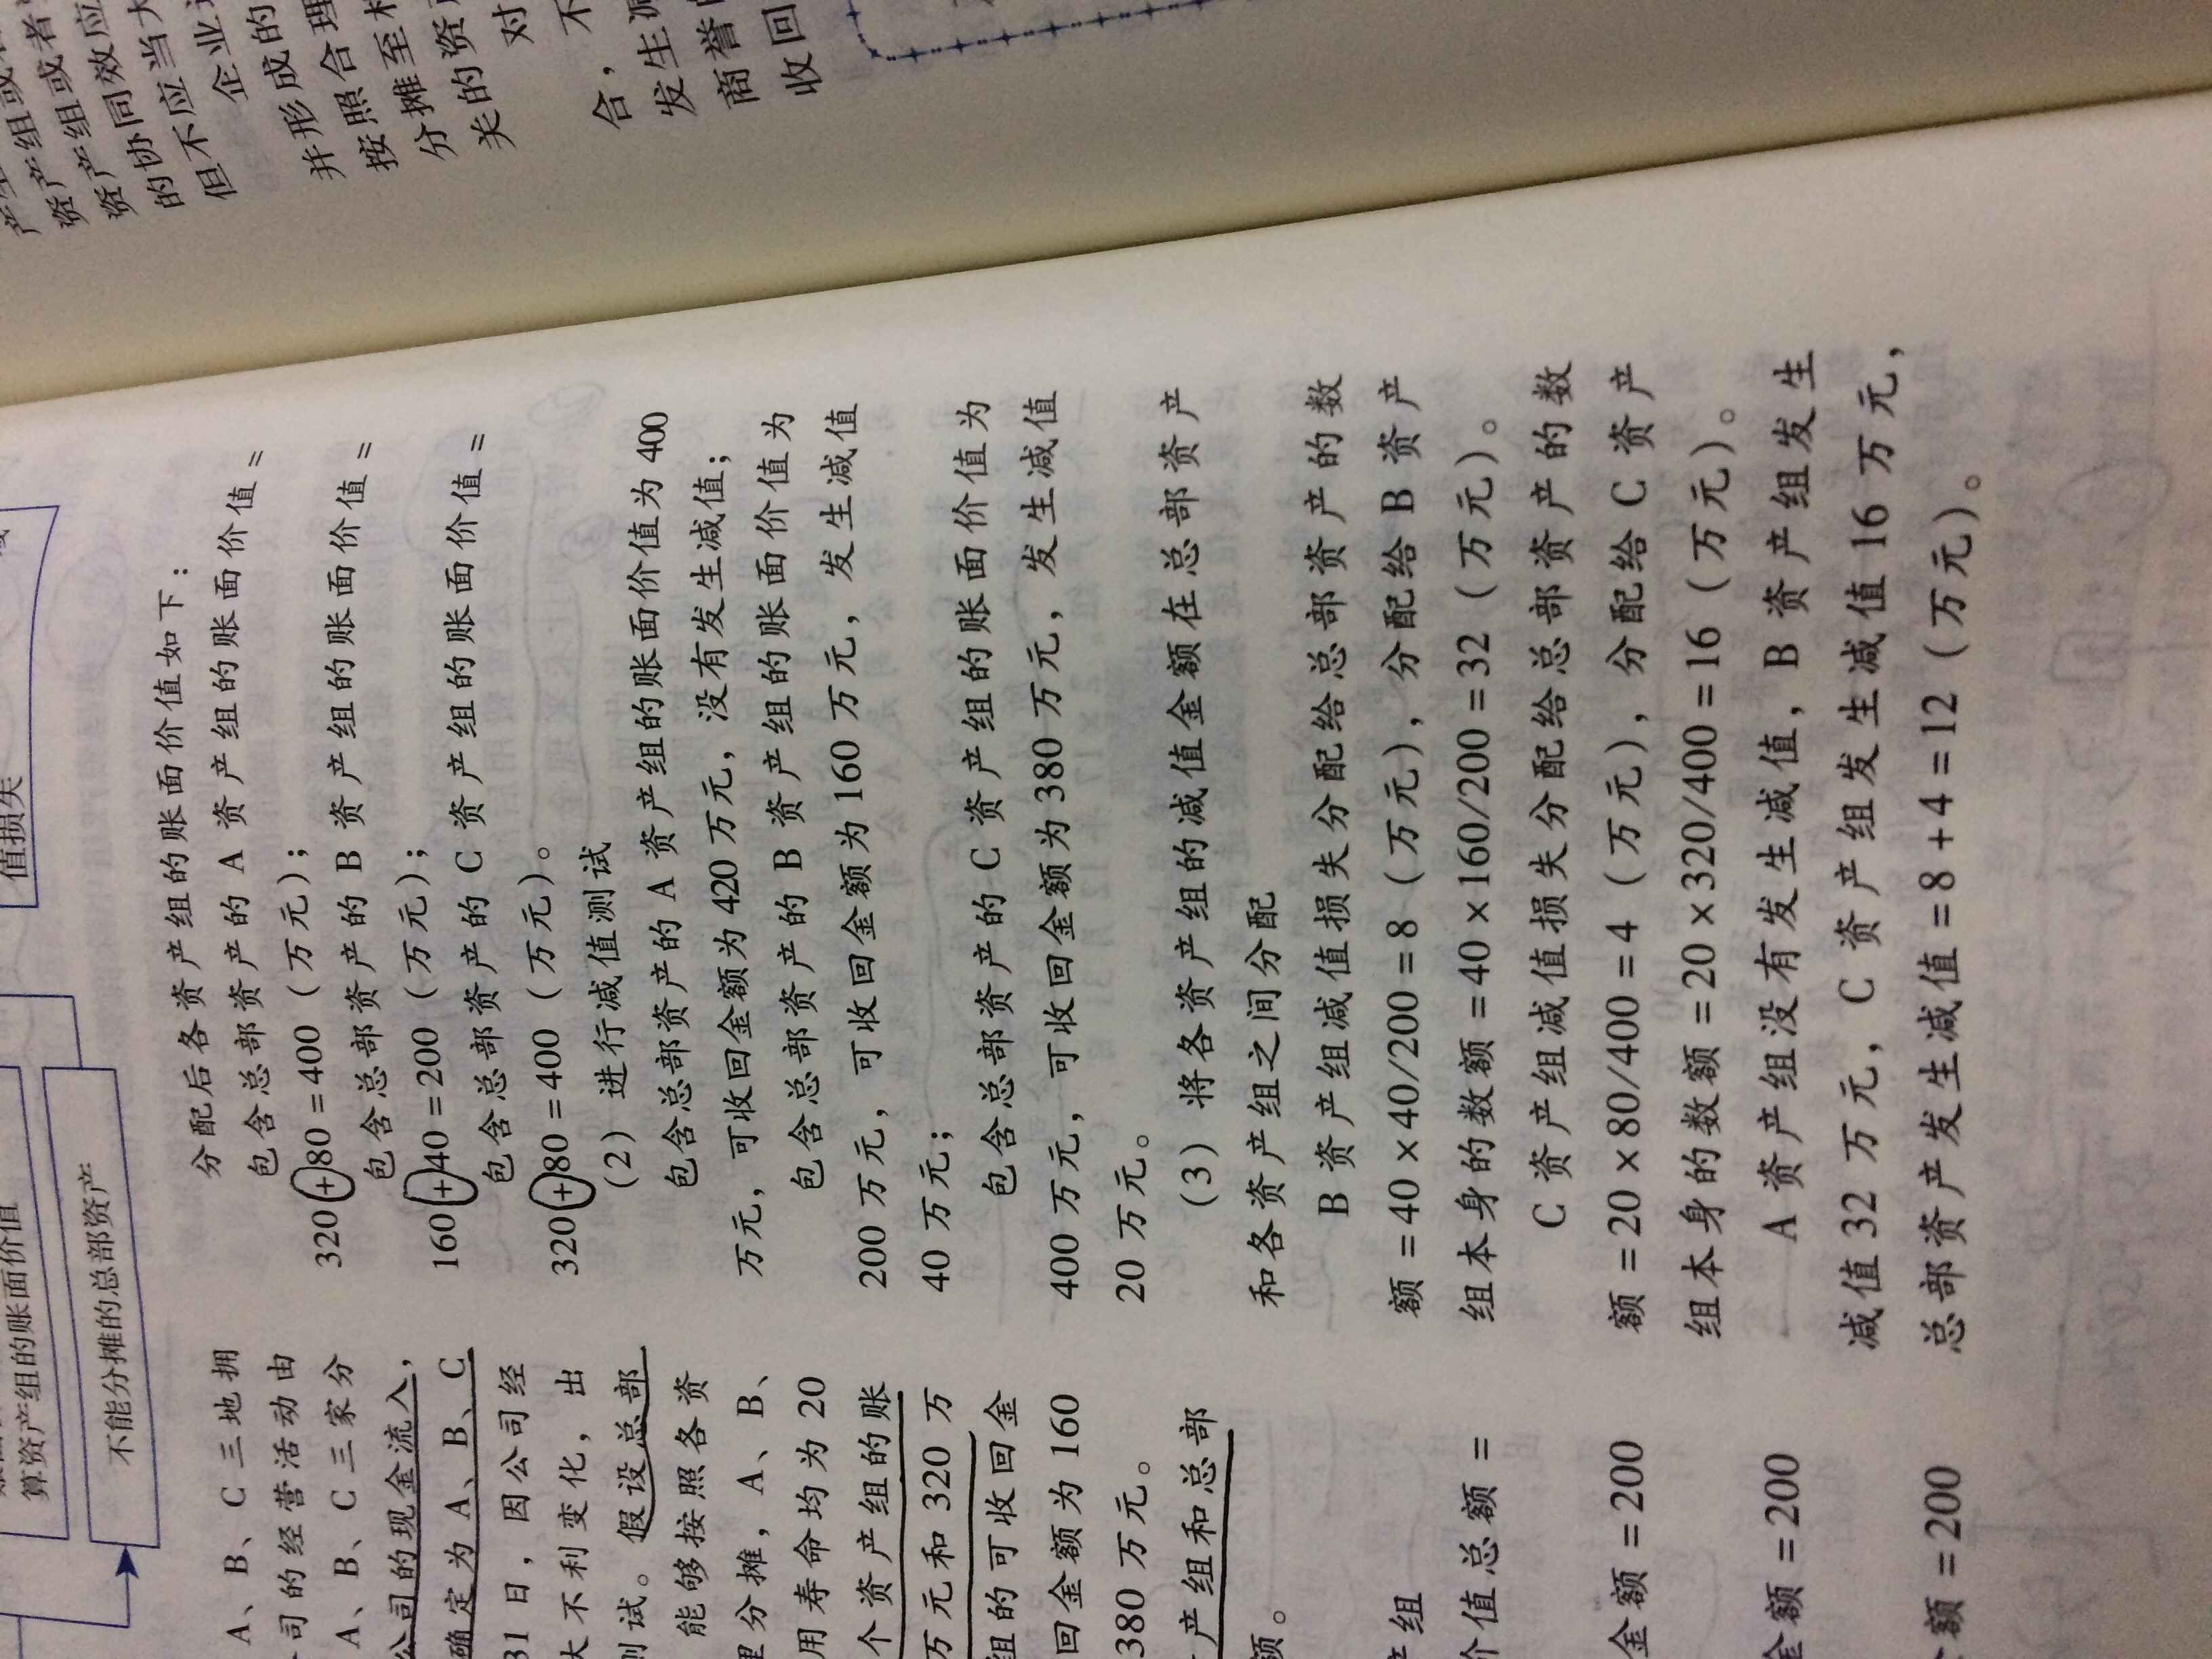 值损失
算资产组的账面价值
不能分摊的总部资产
A、B、C三地拥
司的经营活动由
A、B、C三家分
公司的现金流入，
确定为A、B、C
31日，因公司经
大不利变化，出
测试。假设总部
能够按照各资
理分摊，A、B、
用寿命均为20
个资产组的账
万元和320万
组的可收回金
回金额为160
380万元。
产组和总部
额。
产组
价值总额=
金额=200
金额=200
金额=200
分配后各资产组的账面价值如下：
包含总部资产的A资产组的账面价值=
320+80=400（万元）；
包含总部资产的B资产组的账面价值=
160+40=200（万元）；
包含总部资产的C资产组的账面价值=
320+80=400（万元）。
（2）进行减值测试
包含总部资产的A资产组的账面价值为400
万元，可收回金额为420万元，没有发生减值；
包含总部资产的B资产组的账面价值为
200万元，可收回金额为160万元，发生减值
40万元；
包含总部资产的C资产组的账面价值为
400万元，可收回金额为380万元，发生减值
20万元。
（3）将各资产组的减值金额在总部资产
和各资产组之间分配
B资产组减值损失分配给总部资产的数
额=40×40/200=8（万元），分配给B资产
组本身的数额=40×160/200=32（万元）。
C资产组减值损失分配给总部资产的数
额=20×80/400=4（万元），分配给C资产
组本身的数额=20×320/400=16（万元）。
A资产组没有发生减值，B资产组发生
减值32万元，C资产组发生减值16万元，
总部资产发生减值=8+4=12（万元）。
产组或
资产组或者
资产协同效应
的协同当
但不应当
企业
并形成的
按照合理
分摊至相
关的资
对
不
合，
发生减
商誉
收回